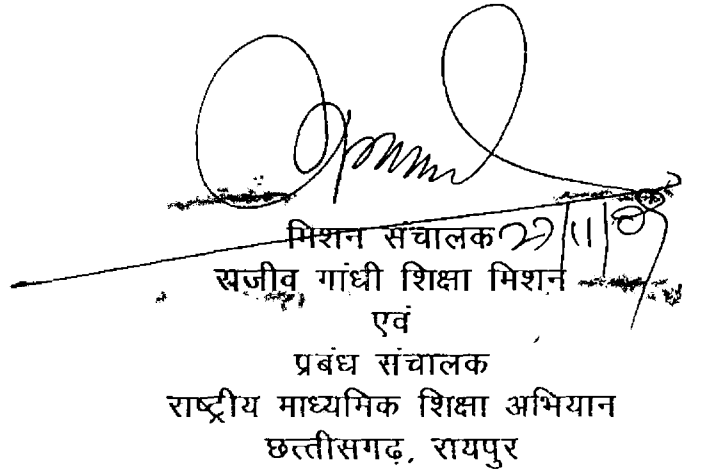 मिशन संचालक
राजीव गांधी शिक्षा मिशन
एवं
प्रबंध संचालक
राष्ट्रीय माध्यमिक शिक्षा अभियान
छत्तीसगढ़, रायपुर